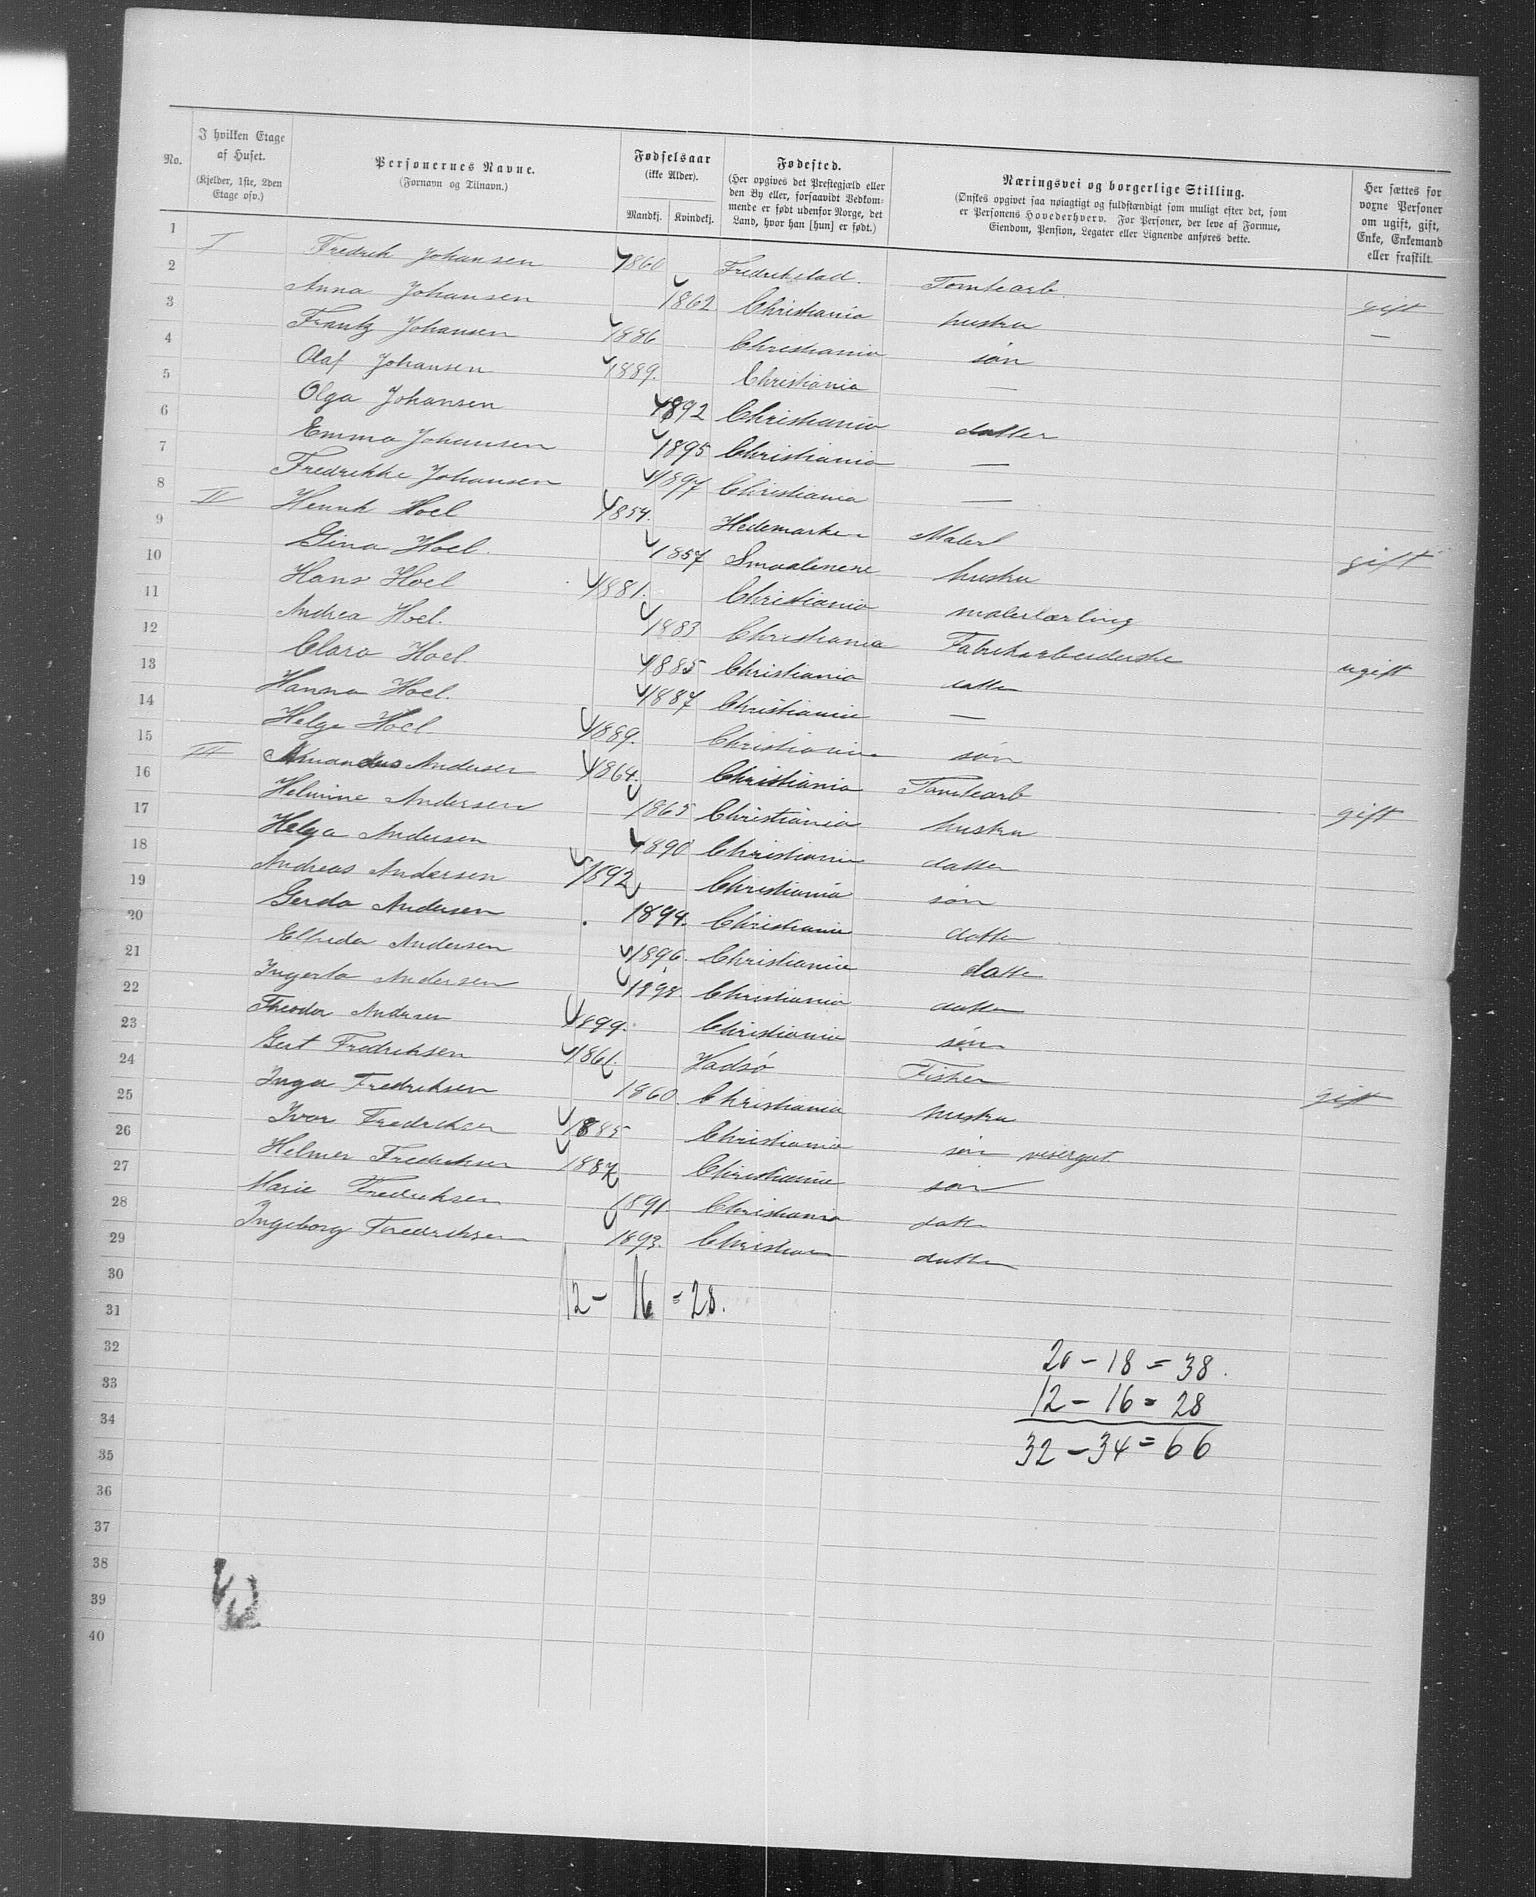 No.
I hvilken Etage af Huset.
(Kjelder, 1ste, 2den Etage osv.)
Personernes Navne.
(Fornavn og Tilnavn.)
Fødselsaar
(ikke Alder).
Mandkj. Kvindekj.
Fødested.
(Her opgives det Prestegjæld eller
den By eller, forsaavidt Vedkom-
mende er født udenfor Norge, det
Land, hvor han [hun] er født.)
Næringsvei og borgerlige Stilling.
(Ønskes opgivet saa nøiagtigt og fuldstændigt som muligt efter det, som
er Personens Hovederhverv. For Personer, der leve af Formue,
Eiendom, Pension, Legater eller Lignende anføres dette.
Her sættes for
voxne Personer
om ugift, gift,
Enke, Enkemand
eller fraskilt.
1 I Fredrik Johansen 1860 Fredrikstad. Tomtearb. gift
2 Anna Johansen 1862 Christiania hustru —
3 Frantz Johansen 1886 Christiania søn
4 Olaf Johansen 1889. Christiania —
5 Olga Johansen 1892 Christiania datter
6 Emma Johansen 1895 Christiania —
7 Fredrikke Johansen 1897 Christiania —
8 II Henrik Hoel 1854. Hedemarken Maler gift
9 Gina Hoel. 1857 Smaalenene hustru
10 Hans Hoel 1881. Christiania malerlærling
11 Andrea Hoel. 1883 Christiania Fabrikarbeiderske ugift
12 Clara Hoel 1885 Christiania datter
13 Hanna Hoel. 1887 Christiania —
14 Helge Hoel 1889. Christiania søn
15 III Amandus Andersen 1864. Christiania Tomtearb gift
16 Helmine Andersen 1865 Christiania hustru
17 Helga Andersen 1890 Christiania datter
18 Andreas Andersen 1892 Christiania søn
19 Gerda Andersen 1894. Christiania datter
20 Elfrida Andersen 1896. Christiania datter
21 Ingerta Andersen 1898 Christiania datter
22 Theodor Andersen 1899. Christiania søn
23 Gert Fredriksen 1861. Vadsø Fisker gift
24 Inga Fredriksen 1860. Christiania hustru
25 Ivar Fredriksen 1885 Christiania søn visergut
26 Helmer Fredriksen 1887 Christiania søn
27 Marie Fredriksen 1891 Christiania datter
28 Ingeborg Fredriksen 1893. Christiania datter
29
30 12 - 16 = 28.
31
32 20 - 18 = 38.
33 12 - 16 = 28
34 32 - 34 = 66
35
36
37
38
39
40